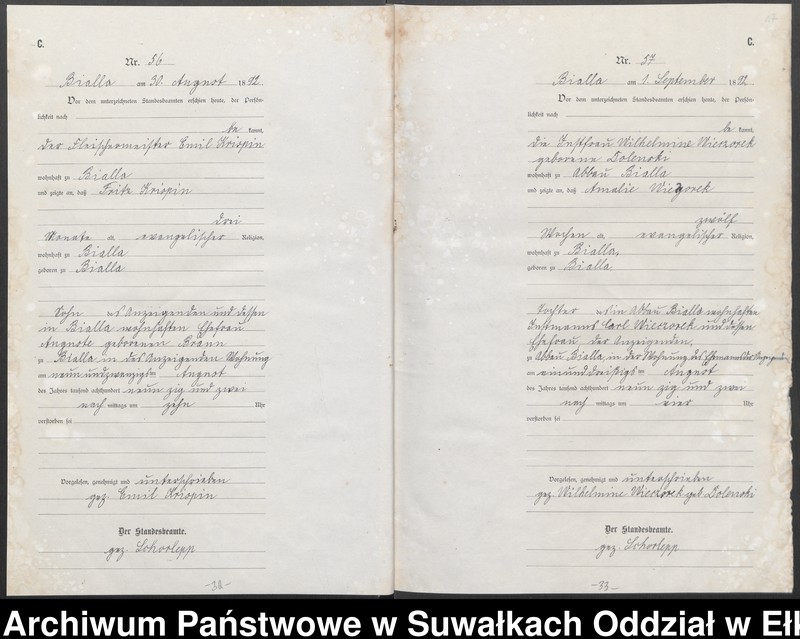 C.
Nr. 56
Bialla am 30. August 1892
Vor dem unterzeichneten Standesbeamten erschien heute, der Persön-
lichkeit nach
be kannt,
der Fleischermeister Emil Krispin
wohnhaft zu Bialla
und zeigte an, daß Fritz Krispin
drei
Monate alt, evangelischer Religion,
wohnhaft zu Bialla
geboren zu Bialla
Sohn des Anzeigenden und dessen
in Bialla wohnhaften Ehefrau
Auguste geborenen Braun
zu Bialla in des Anzeigenden Wohnung
am neun und zwanzigsten August
des Jahres tausend achthundert neun zig und zwei
nach mittags um zehn Uhr
verstorben sei
Vorgelesen, genehmigt und unterschrieben
gez. Emil Krispin
Der Standesbeamte.
gez. Schorlepp
C.
Nr. 57
Bialla am 1. September 1892
Vor dem unterzeichneten Standesbeamten erschien heute, der Persön-
lichkeit nach
be kannt,
die Instfrau Wilhelmine Wieczorek
geborene Dolenski
wohnhaft zu Abbau Bialla
und zeigte an, daß Amalie Wiezorek
zwölf
Wochen alt, evangelischer Religion,
wohnhaft zu Bialla,
geboren zu Bialla,
Tochter des in Abbau Bialla wohnhaften
Instmanns Carl Wieczorek und dessen
Ehefrau, der Anzeigenden,
zu Abbau Bialla, in der Wohnung des Ehemannes der Anzeigenden
am einunddreißigsten August
des Jahres tausend achthundert neun zig und zwei
nach mittags um vier Uhr
verstorben sei
Vorgelesen, genehmigt und unterschrieben
gez. Wilhelmine Wieczorek geb. Dolenski
Der Standesbeamte.
gez. Schorlepp
-33-
Archiwum Państwowe w Suwałkach Oddział w Eł